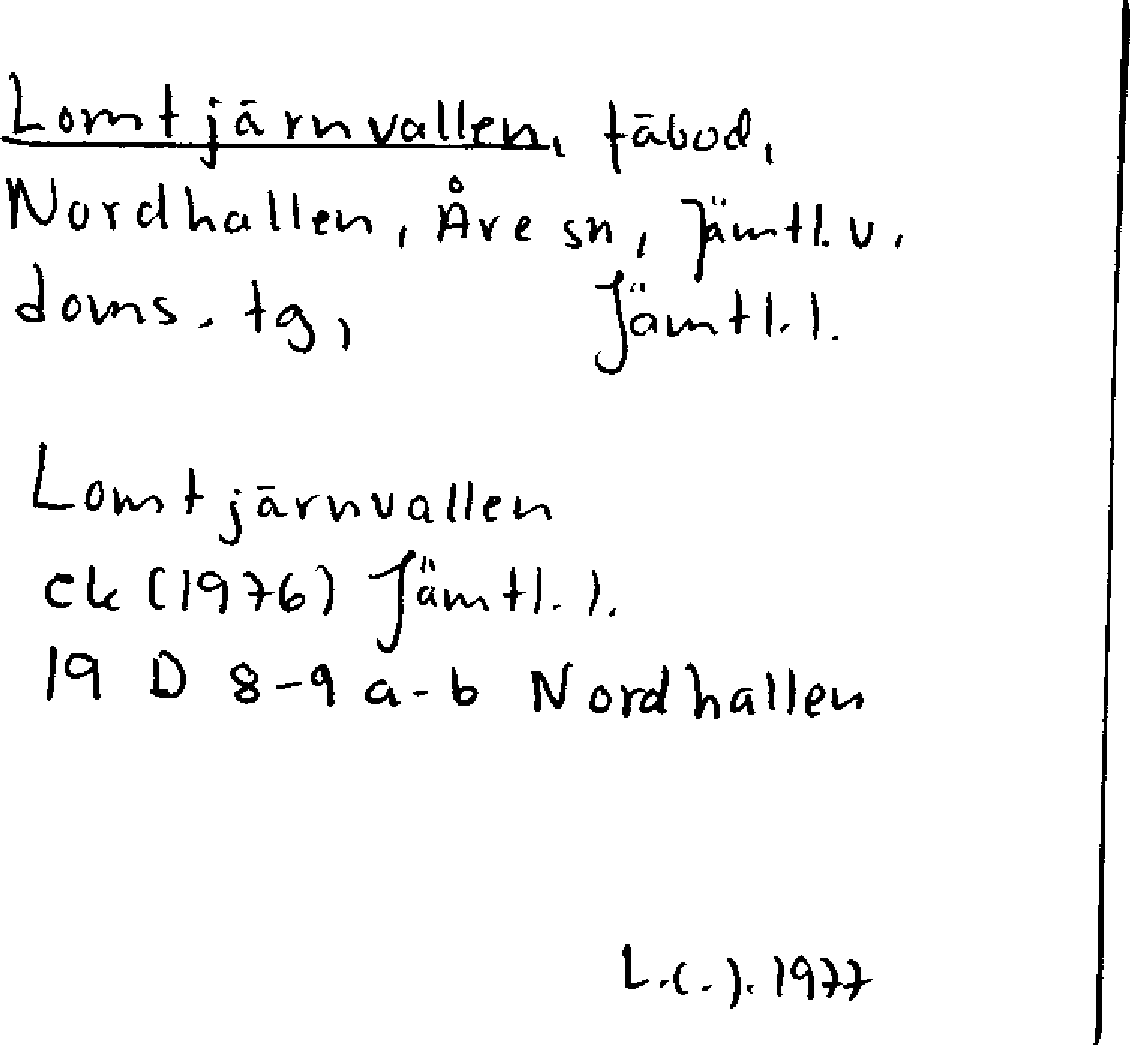 Lomtjärnvallen, fäbod,
Nordhallen, Åre sn, Jämtl. v.
doms. tg, Jämtl. l.
Lomtjärnvallen
ek (1976) Jämtl. l.
19 D 8-9 a-b Nordhallen
1977